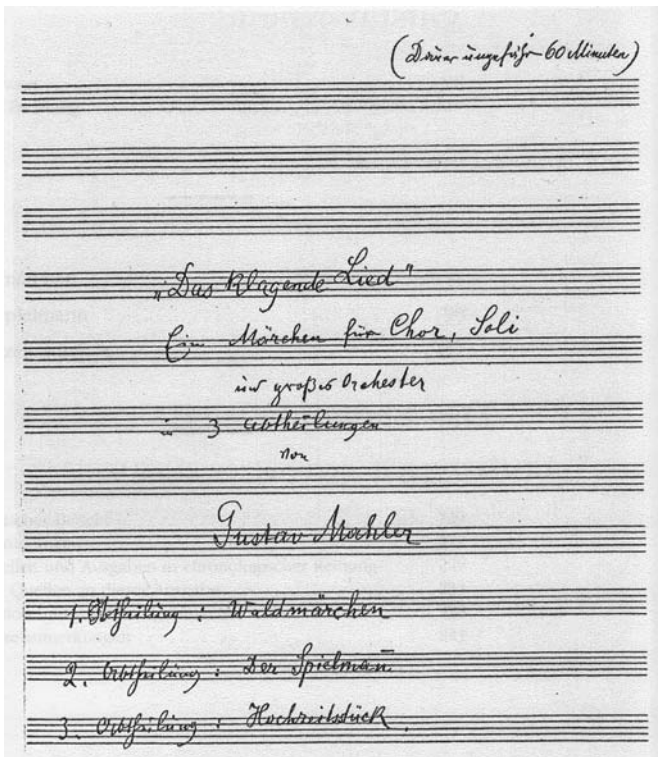 (Dauer ungefähr 60 Minuten)
„Das klagende Lied"
Ein Märchen für Chor, Soli
und großes Orchester
in 3 Abtheilungen
von
Gustav Mahler
1. Abtheilung : Waldmärchen
2. Abtheilung : Der Spielman̄
3. Abtheilung : Hochzeitsstück.